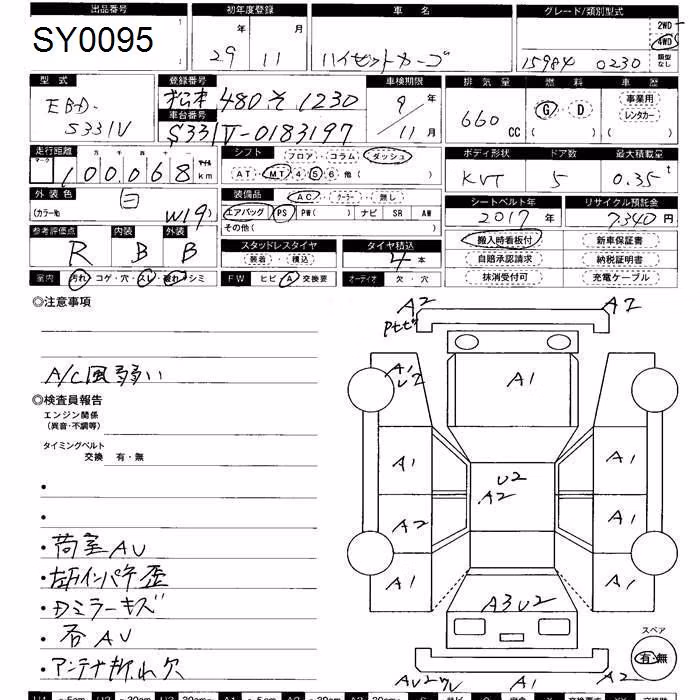 出品番号 初年度登録 車名 グレード/類別型式
SY0095 29年 11月 ハイゼットカーゴ 15984 0230 2WD 4WD 類型なし
型式 登録番号 車検期限 排気量 燃料 車歴
EBD-S331V 松本 480 そ 1230 9年 11月 660 CC G・D 事業用 レンタカー
車台番号
S331V-0183197
走行距離 シフト フロア・コラム・ダッシュ ボディ形状 ドア数 最大積載量
マーク 十万 万 千 百 十 一 マイル km
100068 AT・MT 4 5 6 他( ) KVT 5 0.35 t
外装色 装備品 AC・クーラー・無し シートベルト年 リサイクル預託金
(カラーNo) W19 エアバッグ PS PW( ) ナビ SR AW 2017年 7340円
その他( )
参考評価点 内装 外装 スタッドレスタイヤ タイヤ積込 搬入時看板付 新車保証書
R B B 装着・積込 4本 自賠承認請求 納税証明書
室内 汚れ・コゲ・穴・スレ・破れ・シミ FW ヒビ・A・交換要 オーディオ 欠・穴 抹消受付可 充電ケーブル
◎注意事項
A/C風弱い
◎検査員報告
エンジン関係
(異音・不調等)
タイミングベルト
交換 有・無
・荷室AU
・インパネ歪
・ミラーキズ
・各AU
・アンテナ折れ欠
A2 A2
A1
U2 A1
A1 A1
U2
A2
A2 A1
A1 A1
A3 U2
スペア
有・無
A1 A2